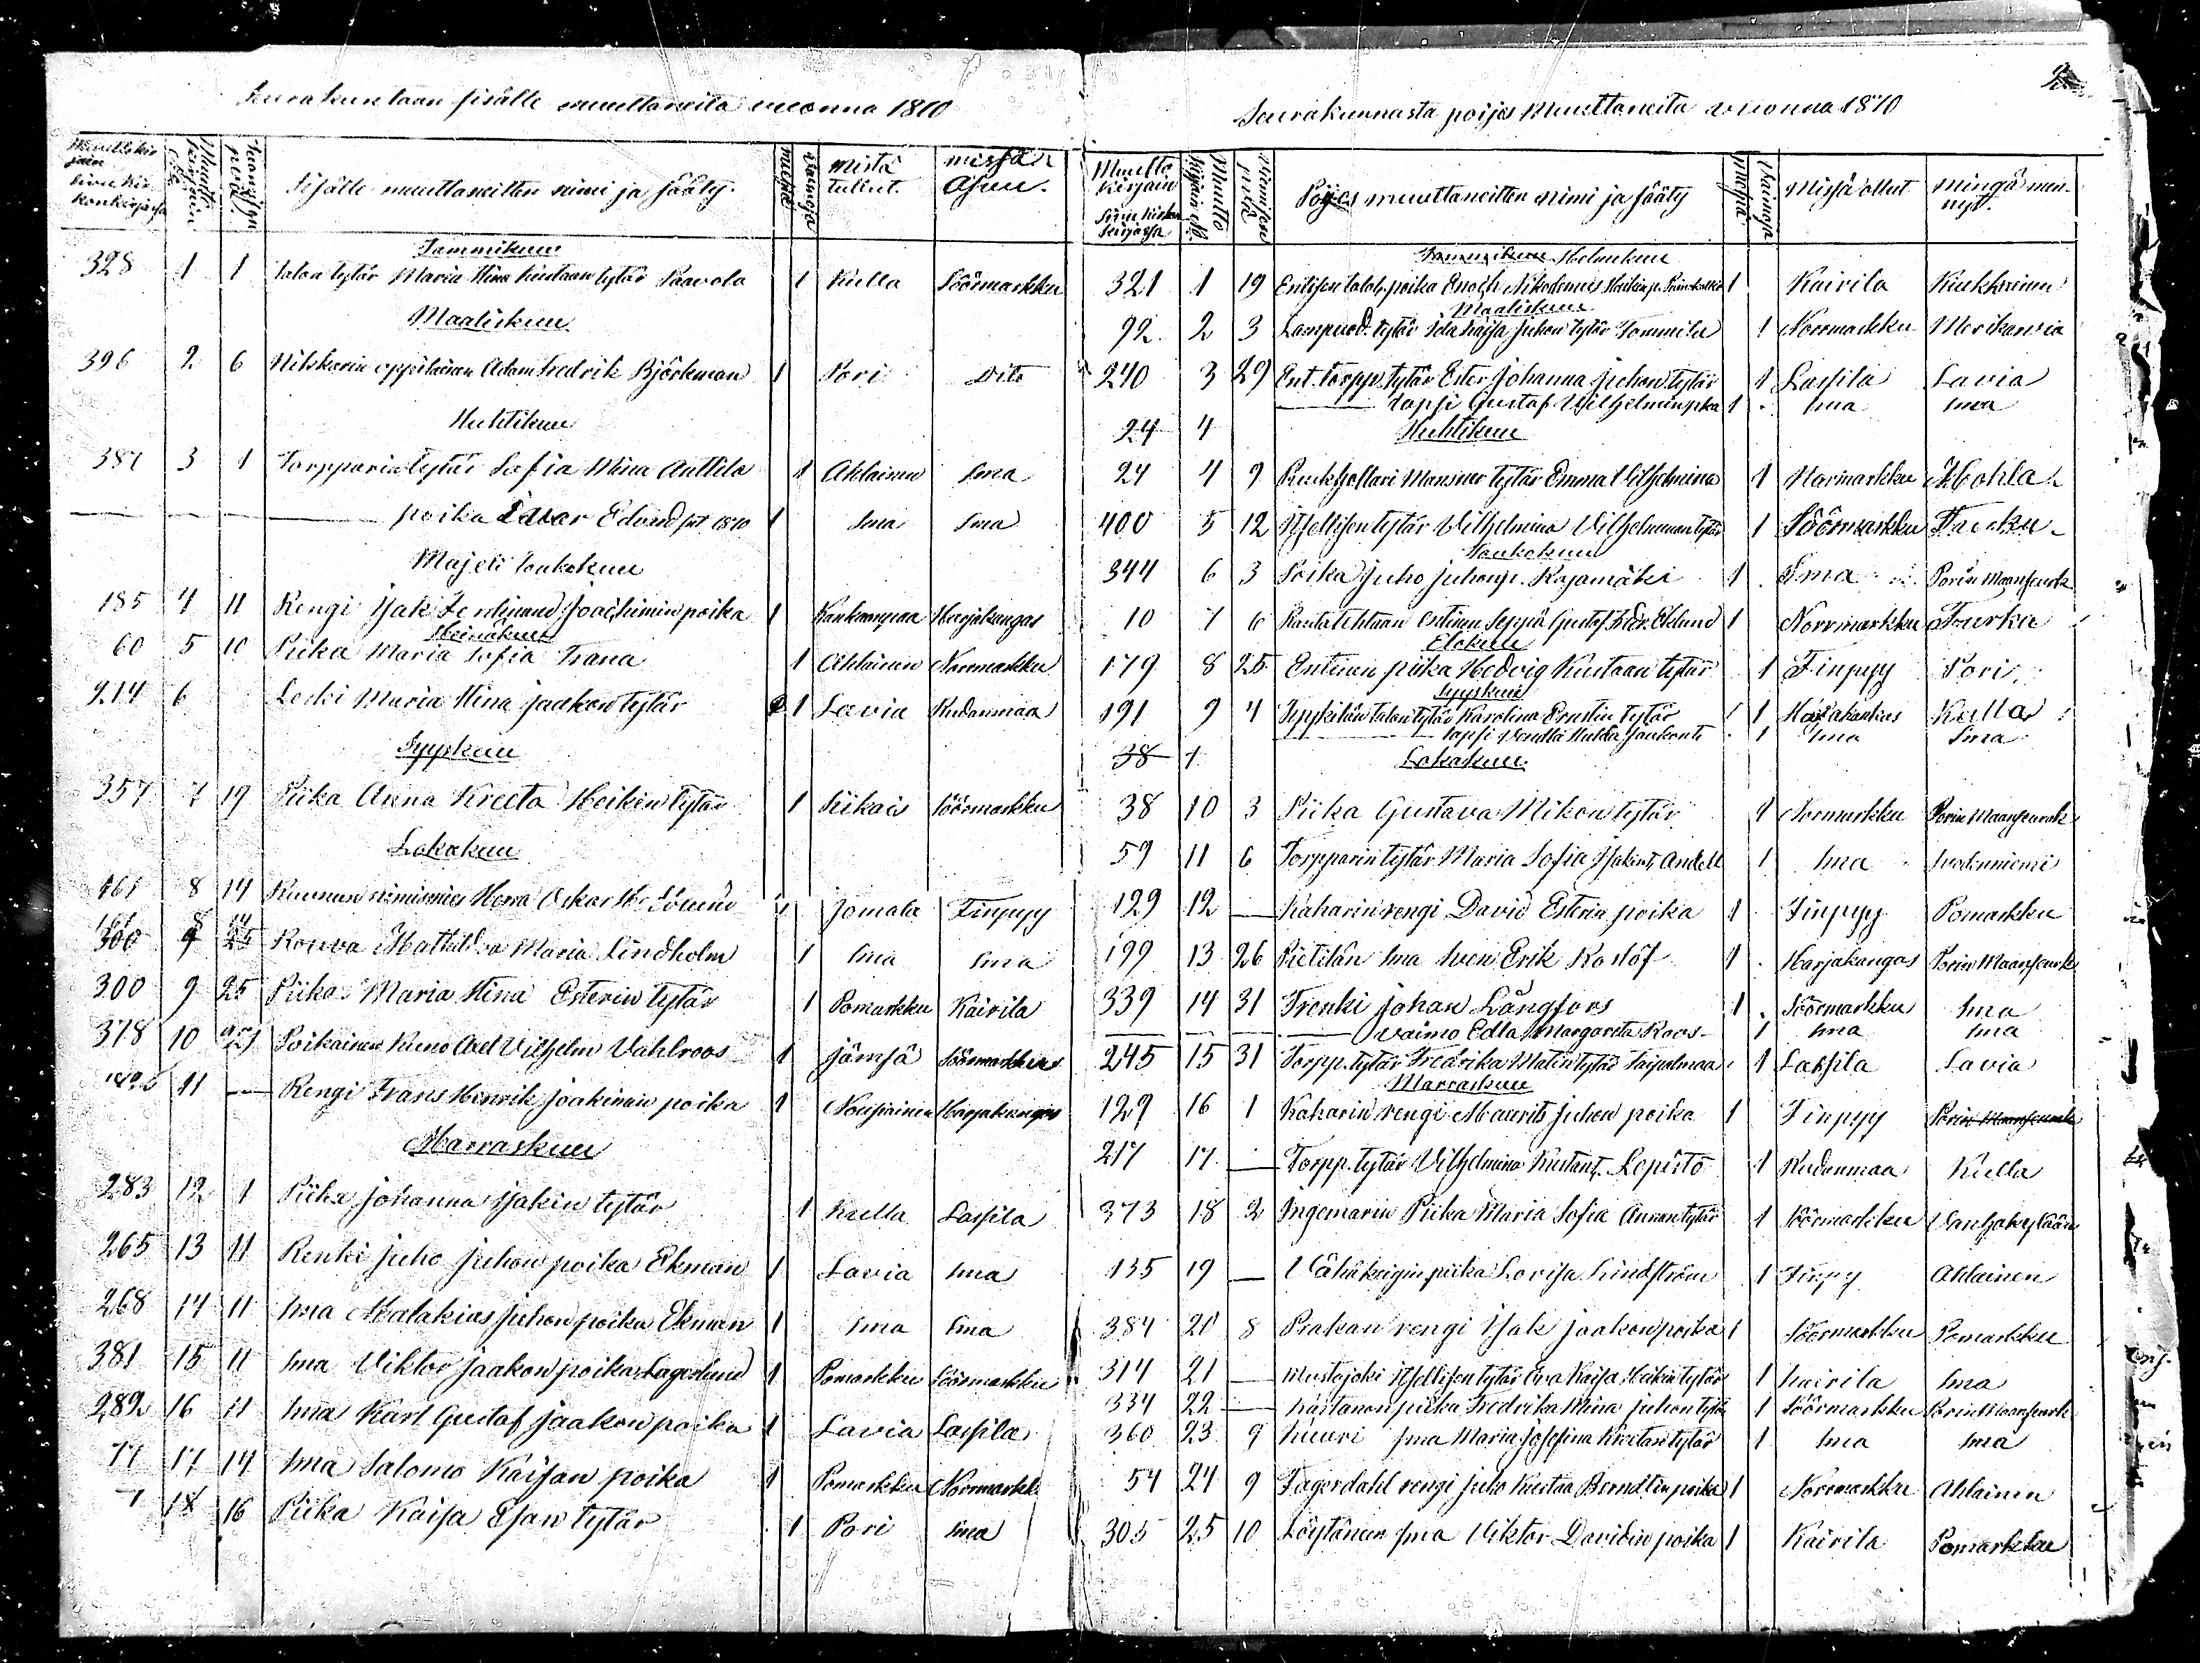 Seurakuntaan sisälle muuttaneita vuonna 1870
Sisälle muuttaneitten nimi ja sääty. miehiä vaimoja mistä tullut. missä Asuu.
Tammikuu
328 1 1 talon tytär Maria Stina Kustaan tytär Paavola 1 Kulla Söörmarkku
Maaliskuu
396 2 6 oppilainen Adam Fredrik Björkman 1 Pori dito
Huhtikuu
387 3 1 Torpparin tytär Sofia Miina Anttila 1 Ahlainen Sma
poika Edvard 1870 1 Sma Sma
Majeli toukokuu
185 4 11 Rengi Isak Ferdinand Joachimin poika 1 Kankaanpää Harjakangas
Heinäkuu
60 5 10 Piika Maria Sofia Frana 1 Ahlainen Normarkku
214 6 Leski Maria Stina Jaakon tytär 1 Lavia Rudanmaa
Syyskuu
357 7 19 Piika Anna Kreeta Heikin tytär 1 Siikais Söörmarkku
Lokakuu
161 8 14 Ruunun nimismies Herra Oskar 1 Jomala Finpyy
Rouva Mathilda Maria Lindholm 1 Sma Sma
300 9 25 Piika Maria Stina Esterin tytär 1 Pomarkku Kairila
378 10 Poikainen Kuno Axel Vilhelm Vahlroos 1 Jämsä Söörmarkku
11 — Rengi Frans Henrik Joakimin poika 1 Noupiainen Harjakangas
Marraskuu
283 12 1 Piika Johanna Isakin tytär 1 Kulla Lassila
265 13 11 Renki Juho Juhon poika Ekman 1 Lavia Sma
268 14 11 Sma Malakias Juhon poika Ekman 1 Sma Sma
381 15 11 Sma Viktor Jaakon poika Lagerlund 1 Pomarkku Söörmarkku
282 16 11 Sma Karl Gustaf Jaakon poika 1 Lavia Lassila
77 17 14 Sma Salomo Kaisan poika 1 Pomarkku Normarkk
18 16 Piika Kaisa Esan tytär 1 Pori Sma
Seurakunnasta poijes Muuttaneita vuonna 1870
Muutto kirjain Poijes muuttaneitten nimi ja sääty Missä ollut mingä mennyt.
Tammikuu Helmikuu
321 1 19 Entisen talol. poika Enoch Nikodemus Heikin p. 1 Kairila Kiukkainen
Maaliskuu
92 2 3 Lampuod. tytär Ida Kaisa Juhon tytär Tommila 1 Normarkku Merikarvia
240 3 29 Ent. Torpp. tytär Ester Johanna Juhon tytär 1 Lassila Lavia
lapsi Gustaf Wilhelmin pka 1 Sma Sma
24 4 Huhtikuu
24 4 9 Mansner tytär Emma Vilhelmina 1 Normarkku
400 5 12 Itsellisen tytär Vilhelmina Vilhelmiinan tytär 1 Söörmarkku Turku
Toukokuu
344 6 3 Poika Juho Juhonp. Rajamäki 1 Sma Porin Maanseurk
10 7 6 entinen Seppä Gustaf Fder. Eklund 1 Normarkku Tourku
Elokuu
179 8 25 Entinen piika Hedvig Kustaan tytär 1 Finpyy Pori
Syyskuu
191 9 4 talon tytär Karolina Ernstin tytär 1 Kulla
lapsi 1 Sma Sma
38 1 Lokakuu
38 10 3 Piika Gustava Mikon tytär 1 Normarkku Porin Maanseurak
59 11 6 Torpparin tytär Maria Sofia Isakin t. Andell 1 Sma
129 12 — Kaharin rengi David Esterin poika 1 Finpyy Pomarkku
199 13 26 Pietilän Sma Sven Erik Koslöf 1 Harjakangas Porin Maanseurk
339 14 31 Frenki Johan Långfors 1 Söörmarkku Sma
— — — vaimo Edla Margareta Roos 1 Sma Sma
245 15 31 Torpp. tytär Fredrika Matin tytär 1 Lassila Lavia
Marraskuu
129 16 1 Kaharin rengi Maurits Juhon poika 1 Finpyy Porin Maanseurak
217 17 — Torpp. tytär Vilhelmina Kustan t. Lepistö 1 Rudanmaa Kulla
373 18 2 Ingemarin Piika Maria Sofia Annan tytär 1 Söörmarkku
135 19 — piika Lovisa Lindström 1 Finpy Ahlainen
384 20 8 Prakan rengi Isak Jaakon poika 1 Söörmarkku Pomarkku
314 21 — Mustajoki Itsellisen tytär Eva Kaisa Heikin tytär 1 Kairila Sma
334 22 — piika Fredrika Miina Juhon tytär 1 Söörmarkku Porin Maanseurk
360 23 9 Kuuri Sma Maria Josefina Kreetan tytär 1 Sma Sma
54 24 9 Fagerdahl rengi Juho Kustaa Berndtin poika 1 Normarkku Ahlainen
305 25 10 Löytänen Sma Viktor Davidin poika 1 Kairila Pomarkku